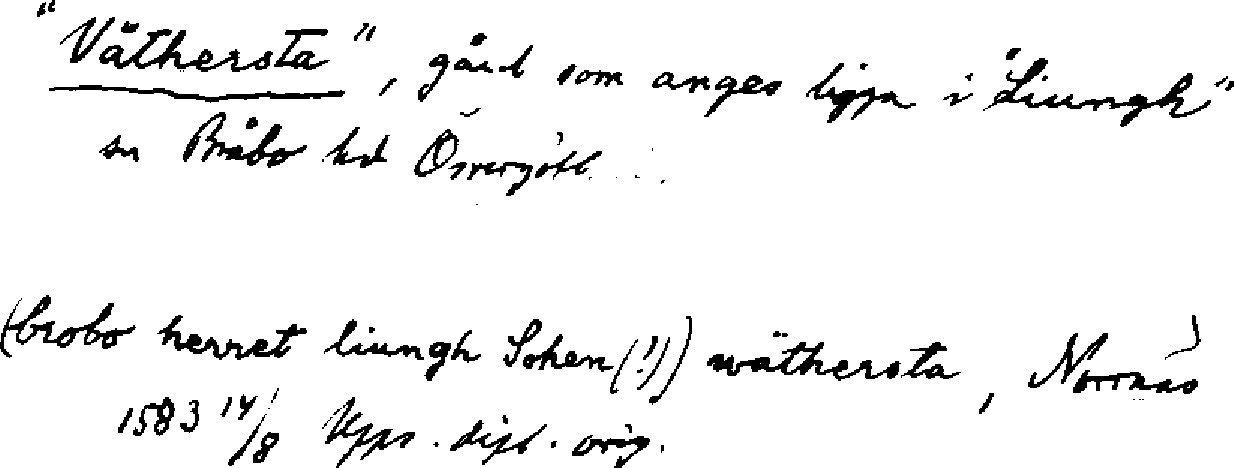 "Väthersta", gård som anges ligga i "Liungh"
sn Bråbo hd Östergötl.
(brobo herret liungh Sohen(!)) wäthersta, Norrnäs
1583 14/8 Upps. dipl. orig.